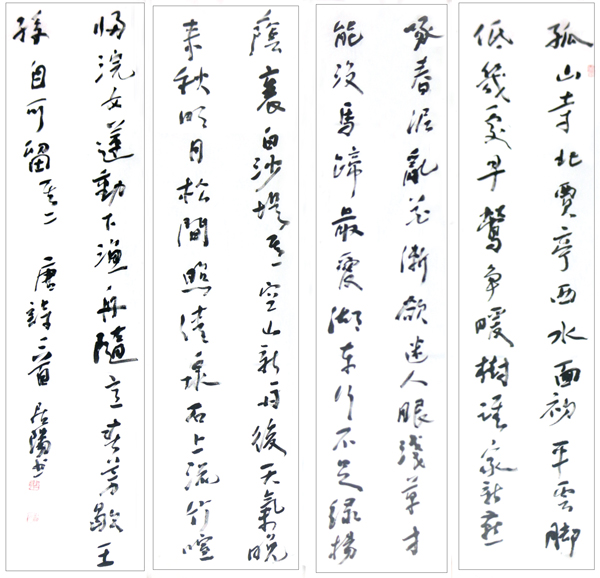 孤山寺北賈亭西水面初平雲腳
低幾處早鶯争暖樹誰家新燕
啄春泥亂花漸欲迷人眼淺草才
能沒馬蹄最愛湖东行不足緑楊
蔭裏白沙堤其一空山新雨後天氣晚
来秋明月松間照清泉石上流竹喧
归浣女蓮動下漁舟隨意春芳歇王
孫自可留其二 唐詩二首